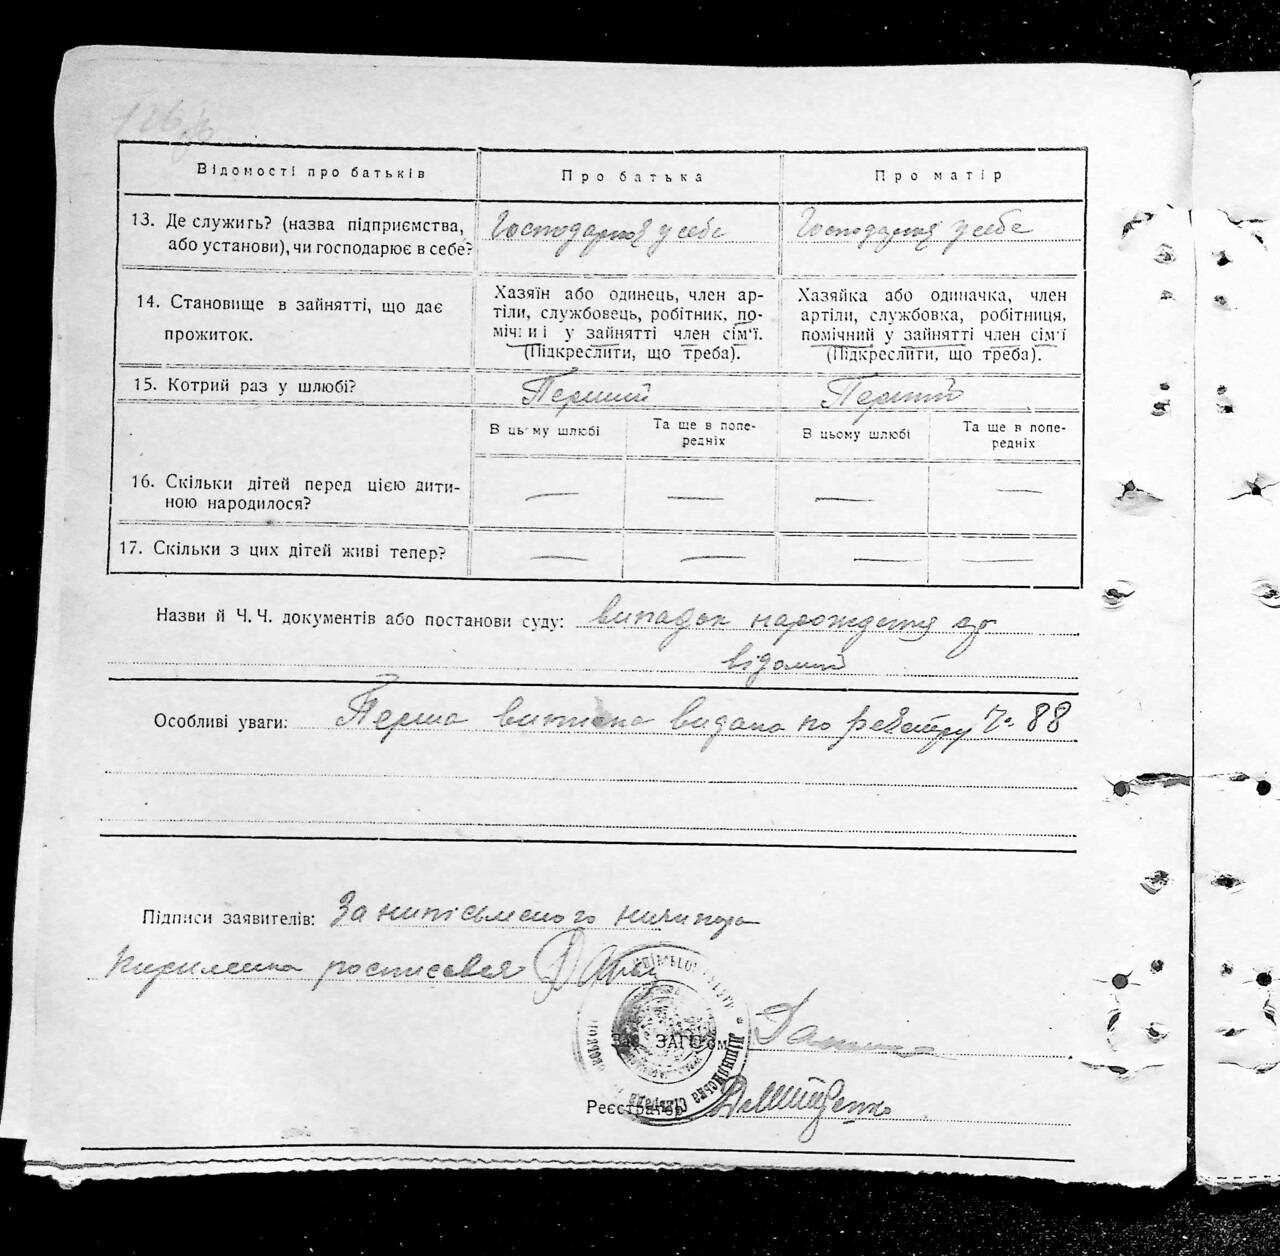 Відомості про батьків
Про батька
Про матір
13. Де служить? (назва підприємства,
або установи), чи господарює в себе?
Господарює у себе
Господарює у себе
14. Становище в зайнятті, що дає
прожиток.
Хазяїн або одинець, член ар-
тіли, службовець, робітник, по-
мічний у зайнятті член сім'ї.
(Підкреслити, що треба).
Хазяйка або одиначка, член
артіли, службовка, робітниця,
помічний у зайнятті член сім'ї
(Підкреслити, що треба).
15. Котрий раз у шлюбі?
Перший
Перший
В цьому шлюбі
Та ще в попе-
редніх
В цьому шлюбі
Та ще в попе-
редніх
16. Скільки дітей перед цією дити-
ною народилося?
— — — —
17. Скільки з цих дітей живі тепер?
— — — —
Назви й Ч. Ч. документів або постанови суду: випадок нарождения
відомий
Особливі уваги: Перша виписка видана по реєстру № 88
Підписи заявителів: За неписьменого Ничипора
Кириленка росписався
Зав. ЗАГС'ом
Реєстратор